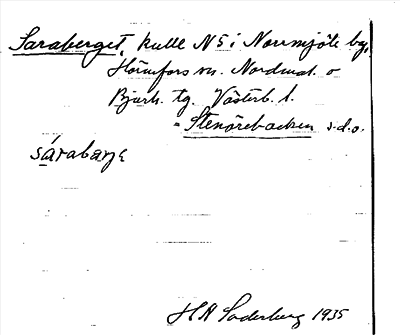 Saraberget, kulle N 5 i Norrmjöle by,
Hörnefors sn. Nordmal. o
Bjurh. tg. Västerb. l.
= Stenörebacken s.d.o.
sárabarje
H A Söderberg 1935